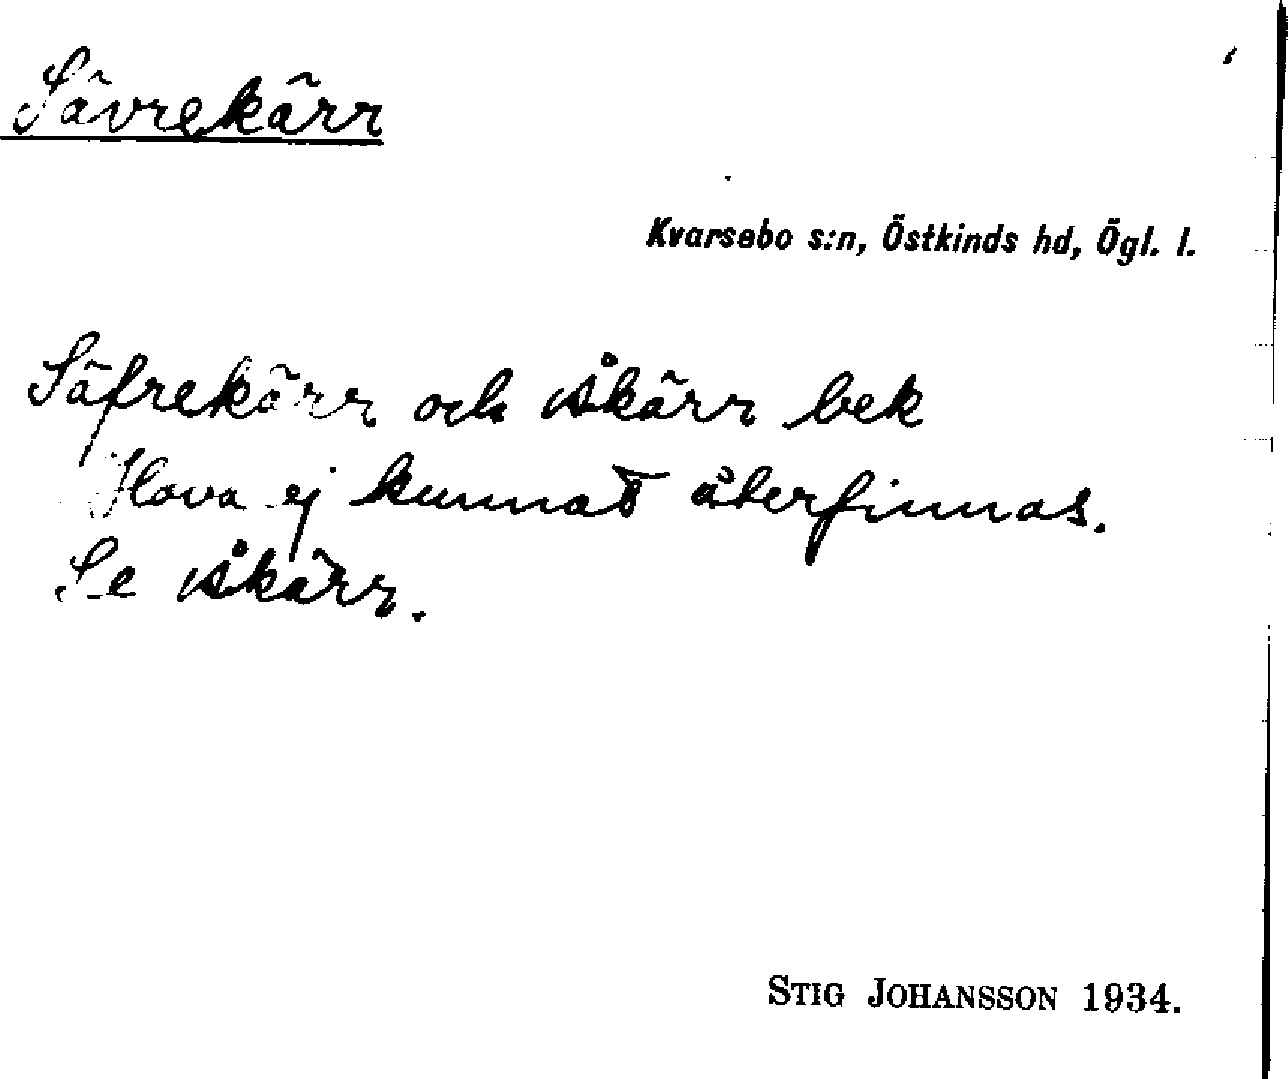 Sävrekärr
Kvarsebo s:n, Östkinds hd, Ögl. l.
Säfrekärr och Åkärr bek
Hava ej kunnat återfinnas.
Se Åkärr.
STIG JOHANSSON 1934.